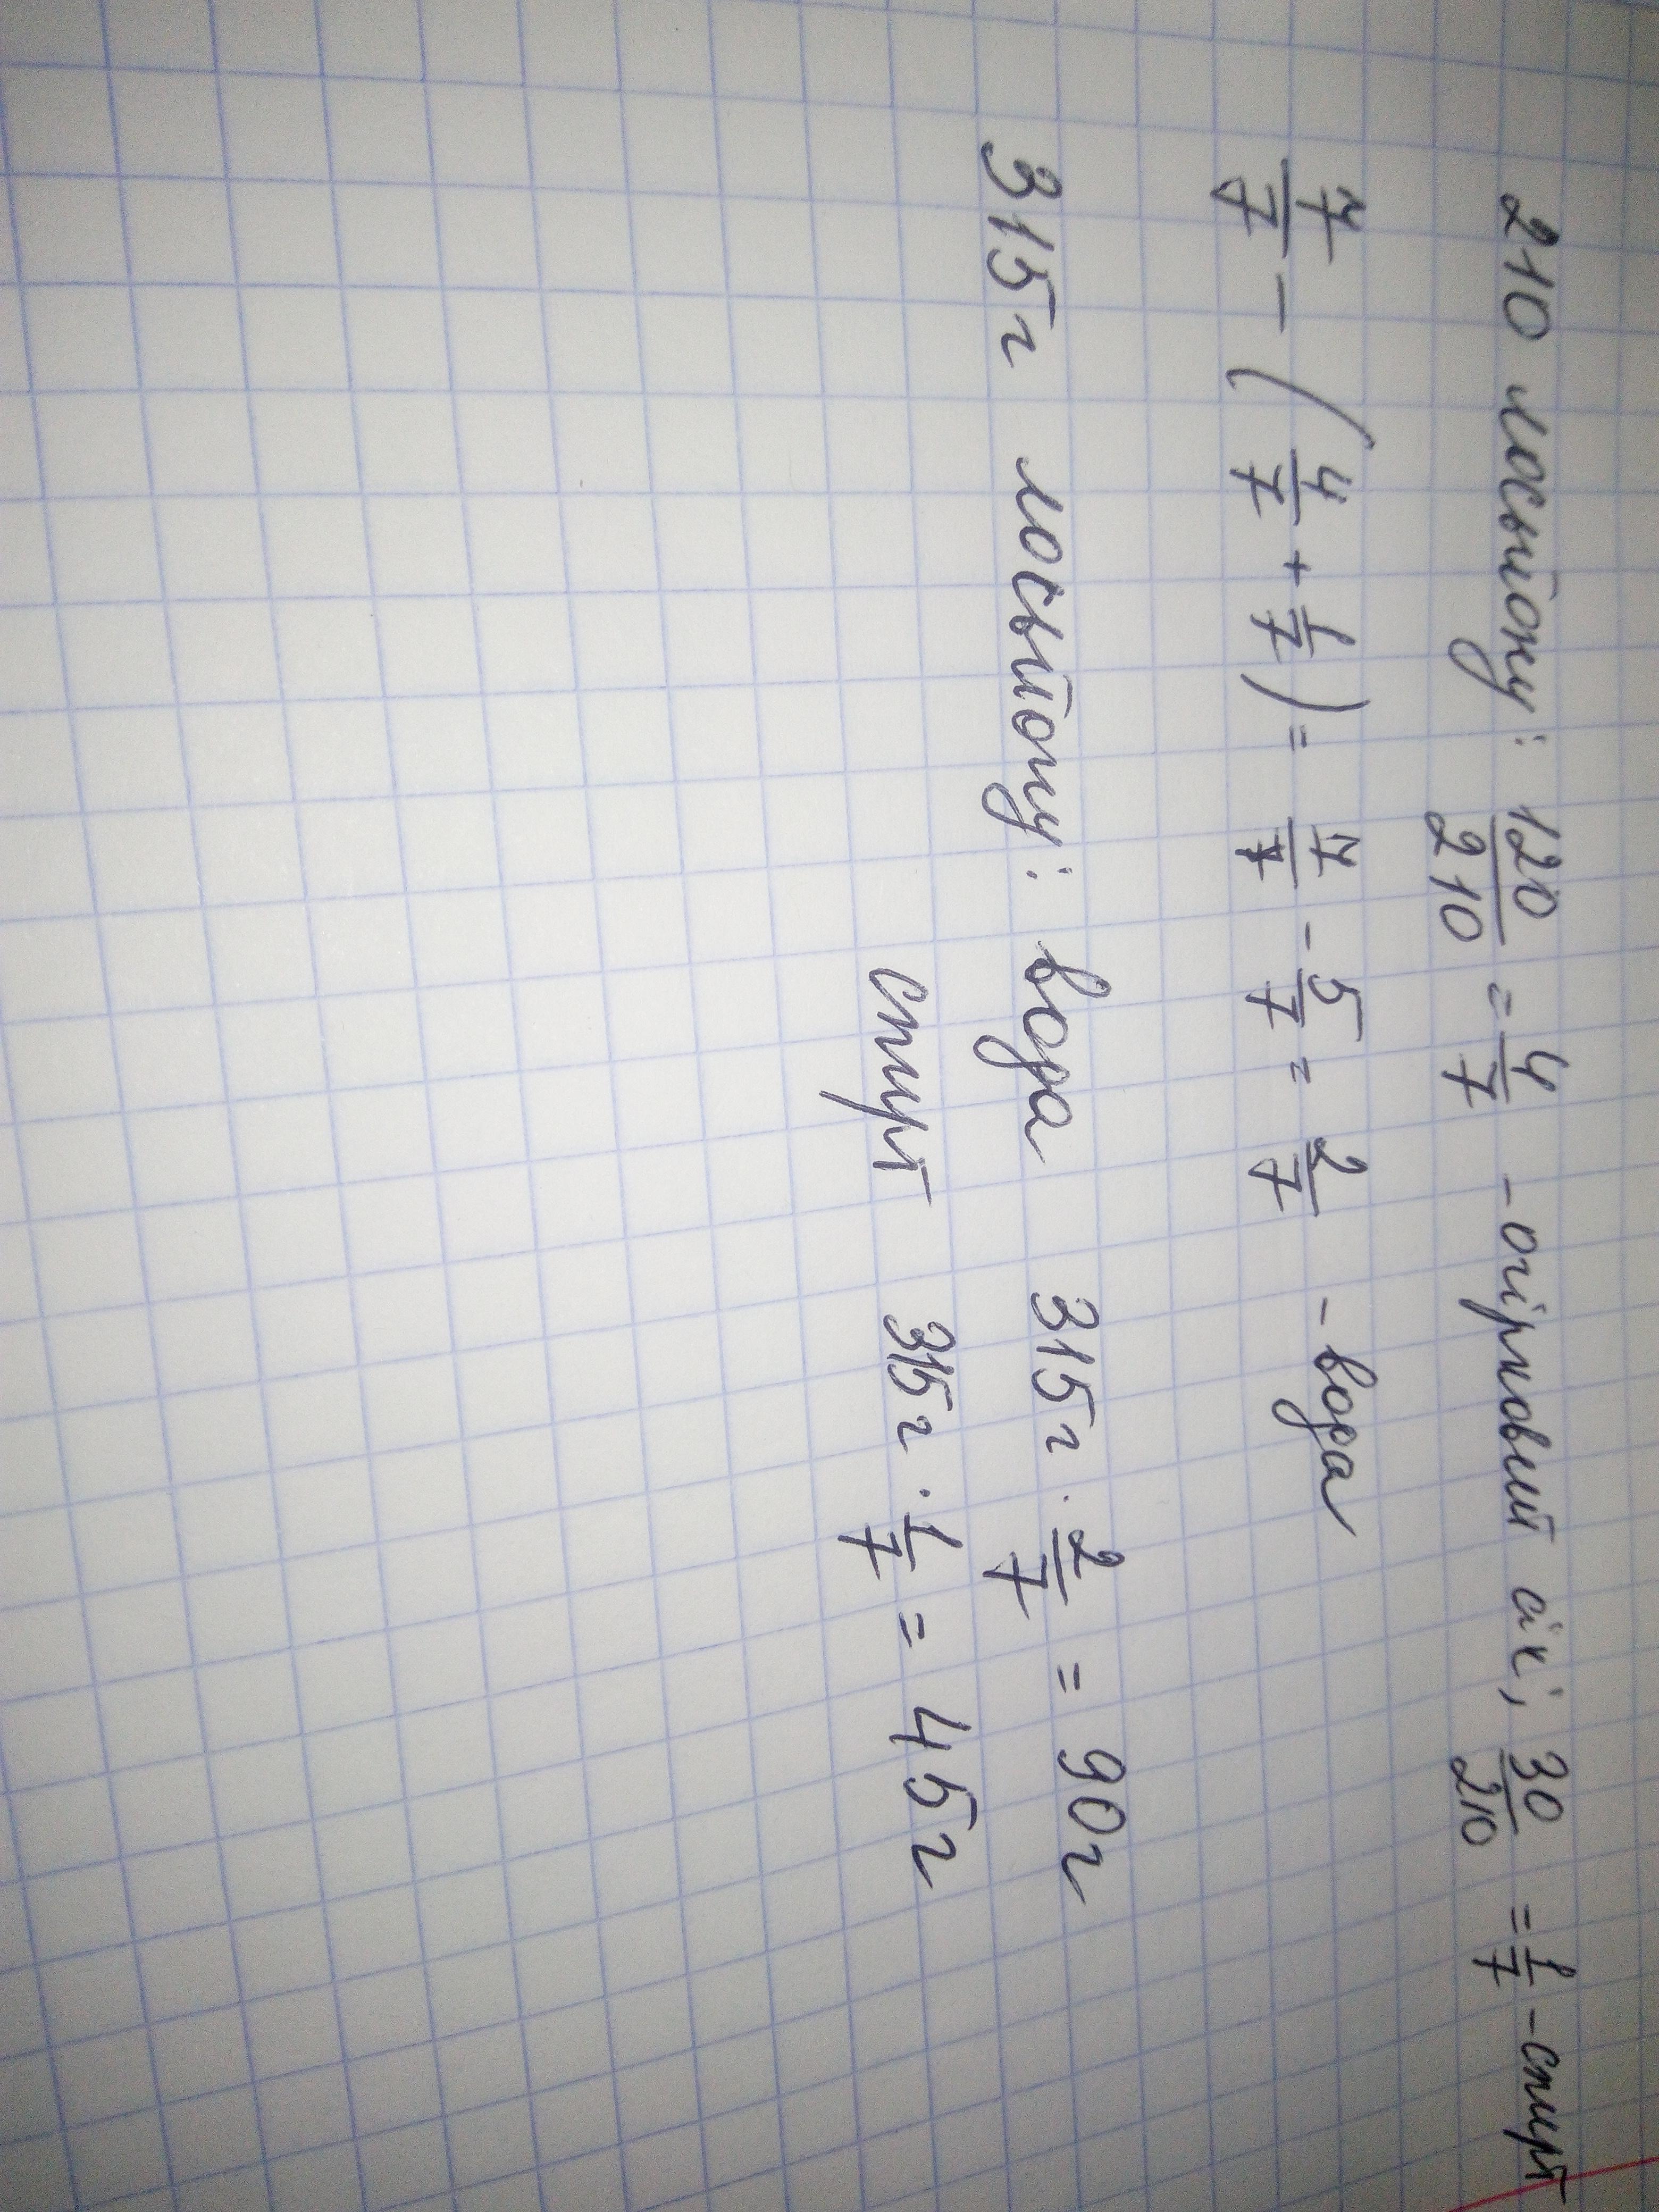 210 лосьйону: 120/210 = 4/7 - огірковий сік; 30/210 = 1/7 - спирт
7/7 - (4/7 + 1/7) = 7/7 - 5/7 = 2/7 - вода
315 г лосьйону: вода 315 г · 2/7 = 90 г
спирт 315 г · 1/7 = 45 г